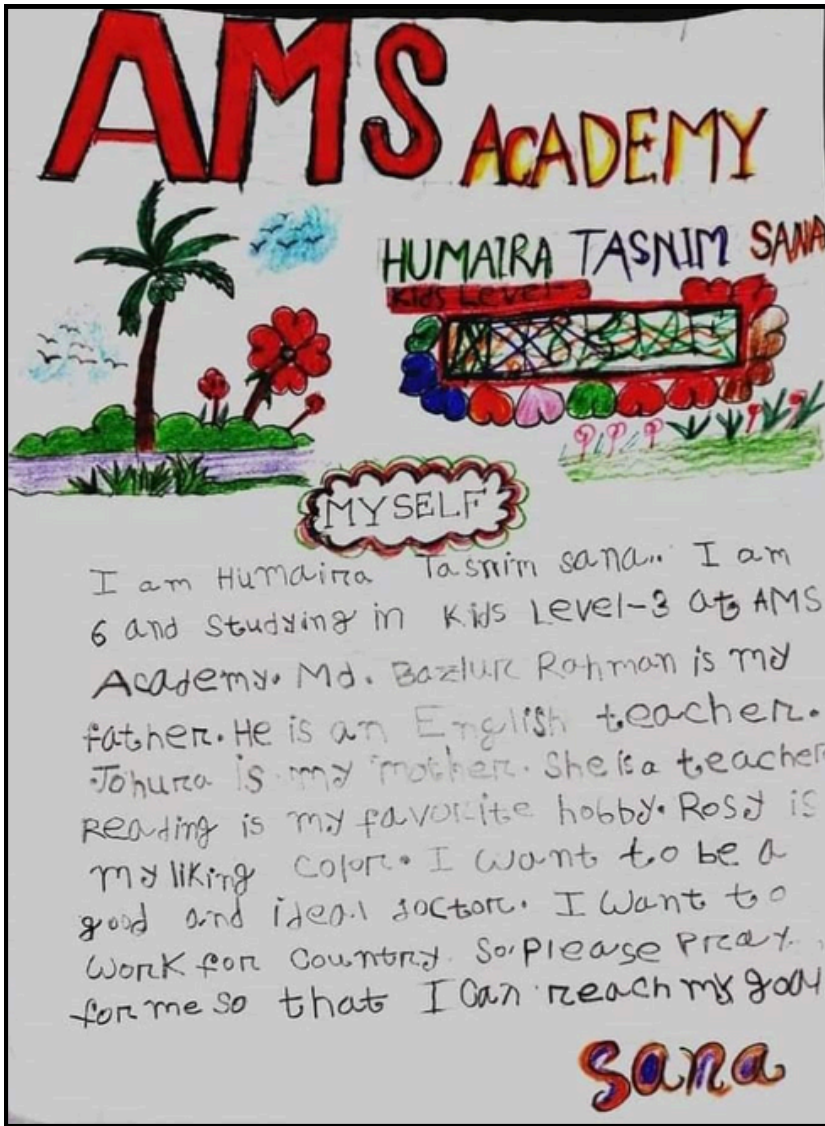 AMS ACADEMY
HUMAIRA TASNIM SANA
Kids Level-3
MYSELF
I am Humaira Tasnim sana.. I am
6 and studying in Kids Level-3 at AMS
Academy. Md. Bazlur Rahman is my
father. He is an English teacher.
Johura is my mother. She is a teacher
Reading is my favorite hobby. Rosy is
my liking color. I want to be a
good and ideal doctor. I want to
work for country. So, please pray
for me so that I can reach my goal
sana